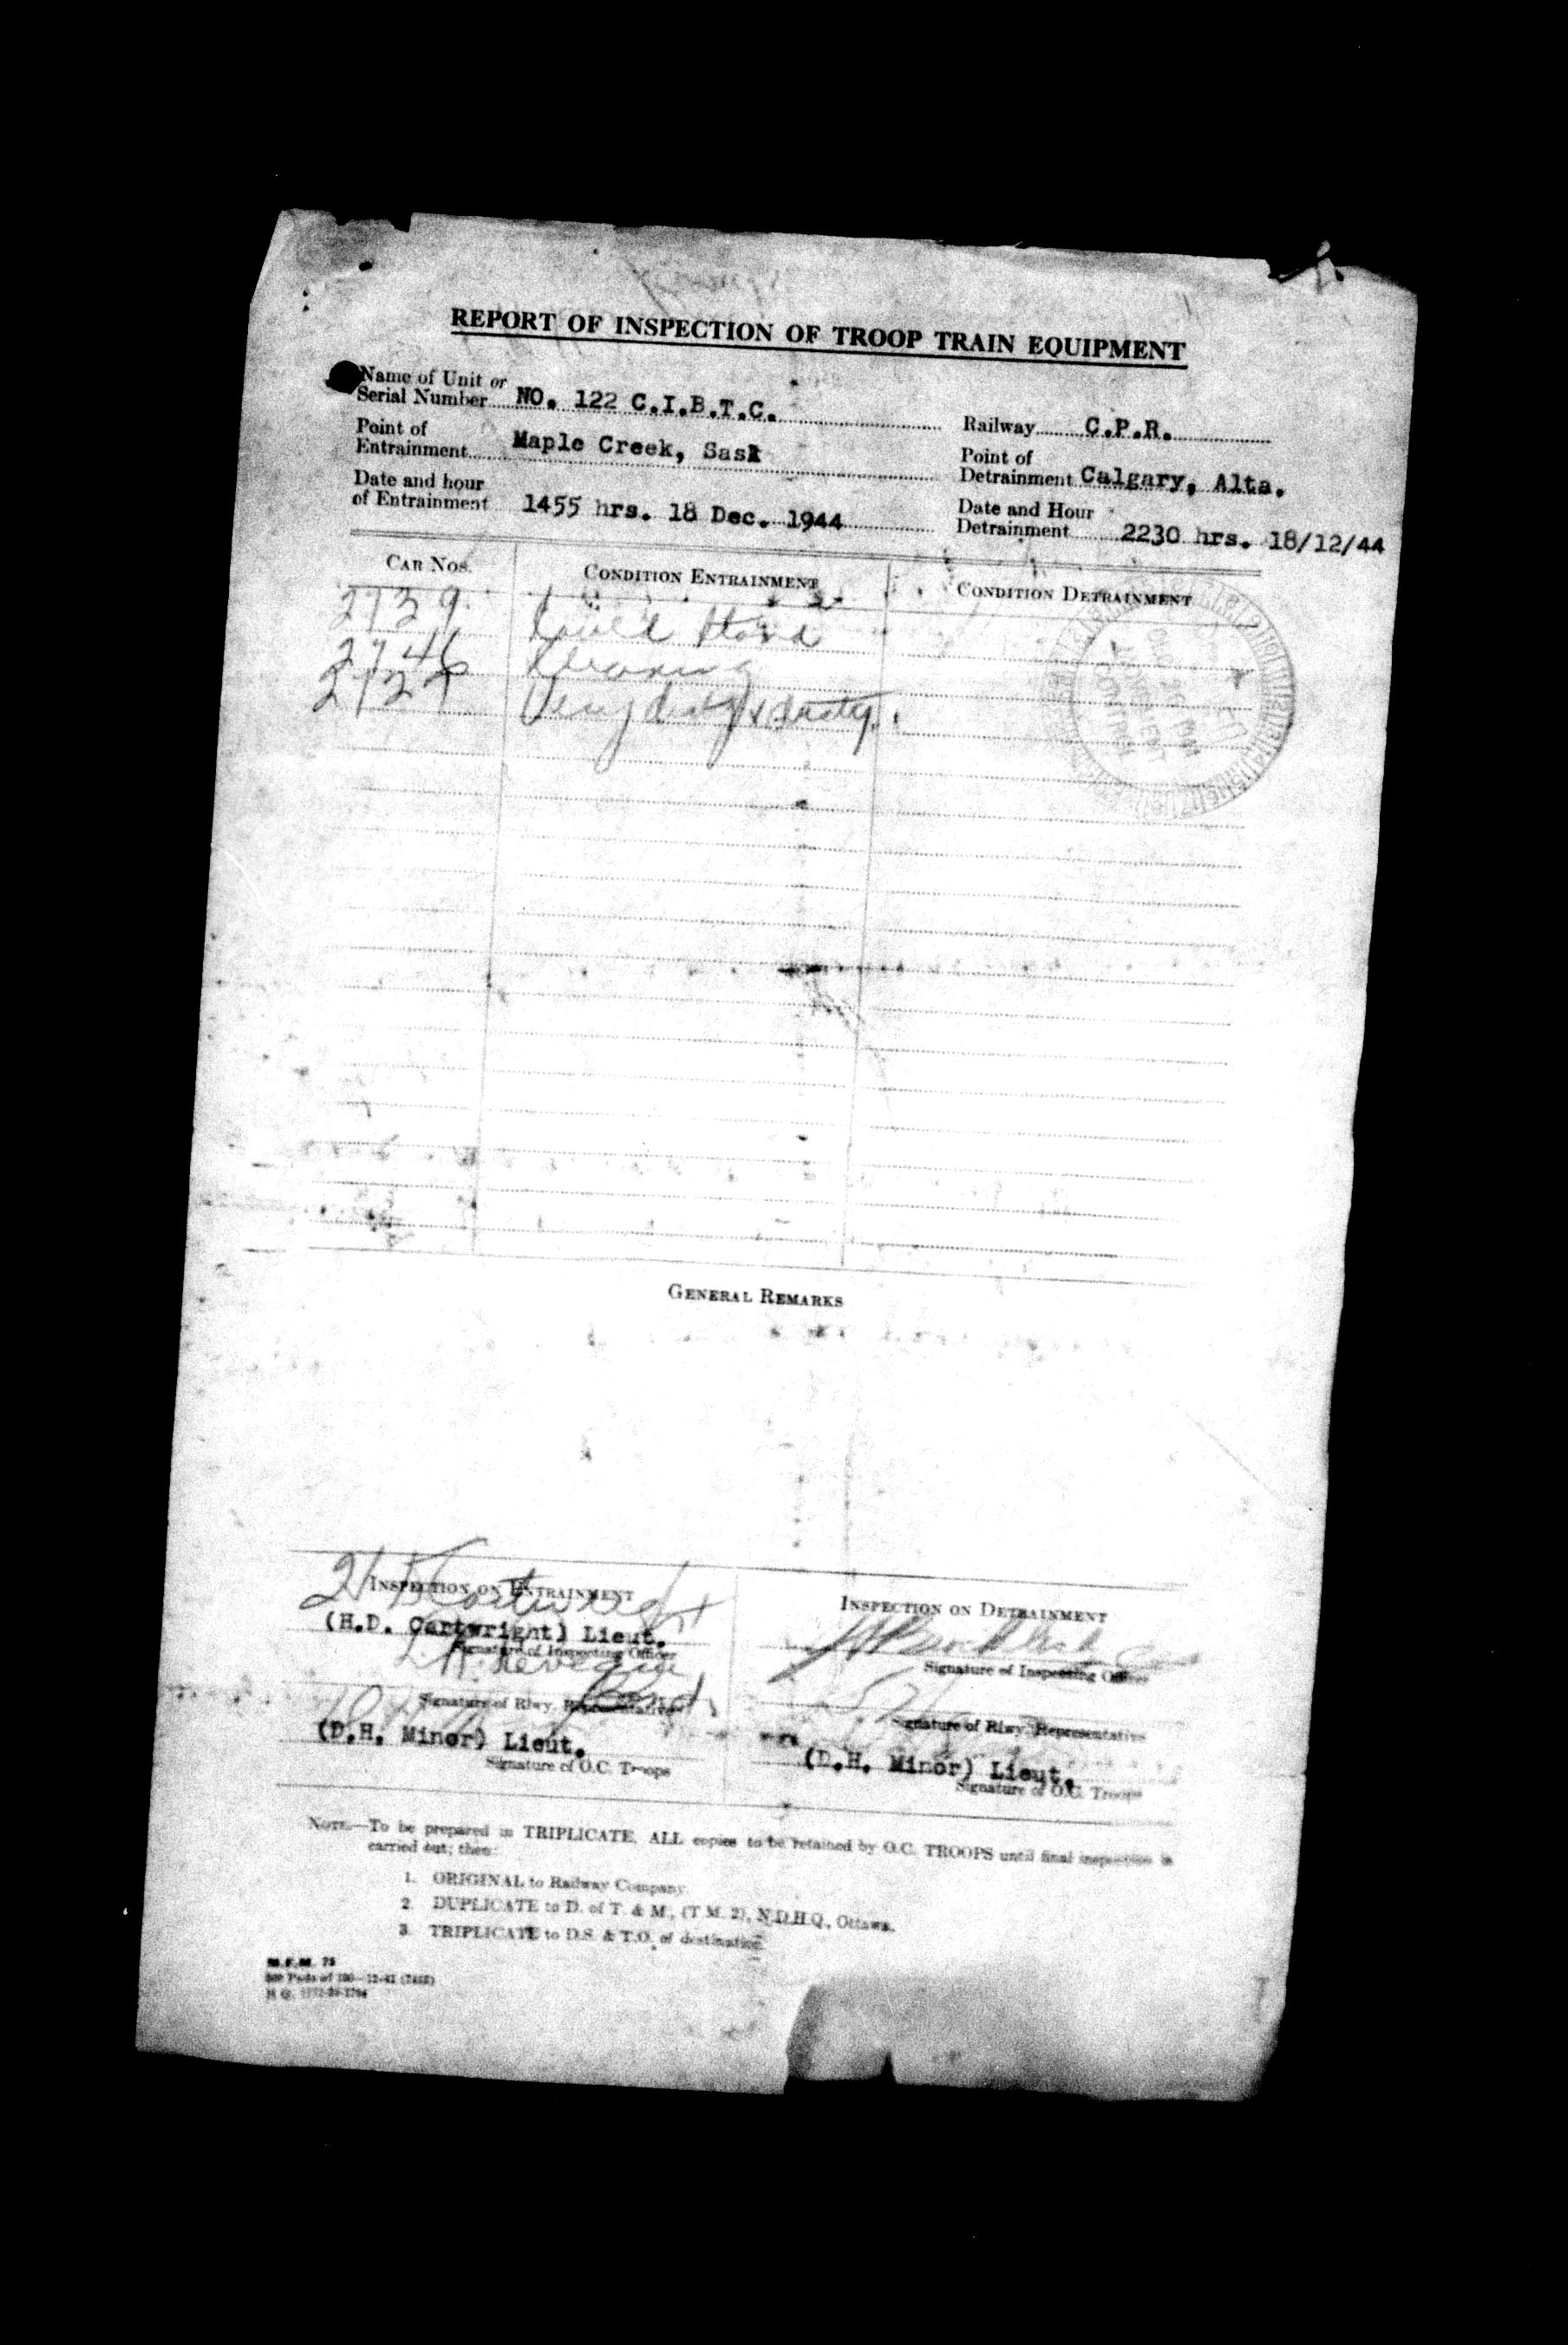 REPORT OF INSPECTION OF TROOP TRAIN EQUIPMENT
Name of Unit or
Serial Number NO. 122 C.I.B.T.C.
Railway C.P.R.
Point of
Entrainment Maple Creek, Sask
Point of
Detrainment Calgary, Alta.
Date and hour
of Entrainment 1455 hrs. 18 Dec. 1944
Date and Hour
Detrainment 2230 hrs. 18/12/44
CAR NOS. CONDITION ENTRAINMENT CONDITION DETRAINMENT
2739 Could Stand
2746 Cleaning
2727 Very dirty & dusty.
GENERAL REMARKS
INSPECTION ON ENTRAINMENT
(H.D. Cartwright) Lieut.
Signature of Inspecting Officer
Signature of Rlwy. Representative
(D.H. Minor) Lieut.
Signature of O.C. Troops
INSPECTION ON DETRAINMENT
Signature of Inspecting Officer
Signature of Rlwy. Representative
(D.H. Minor) Lieut.
Signature of O.C. Troops
NOTE.—To be prepared in TRIPLICATE. ALL copies to be retained by O.C. TROOPS until final inspection is
carried out; then:
1. ORIGINAL to Railway Company.
2 DUPLICATE to D. of T. & M., (T.M. 2), N.D.H.Q., Ottawa.
3. TRIPLICATE to D.S. & T.O. of destination.
M.F.M. 75